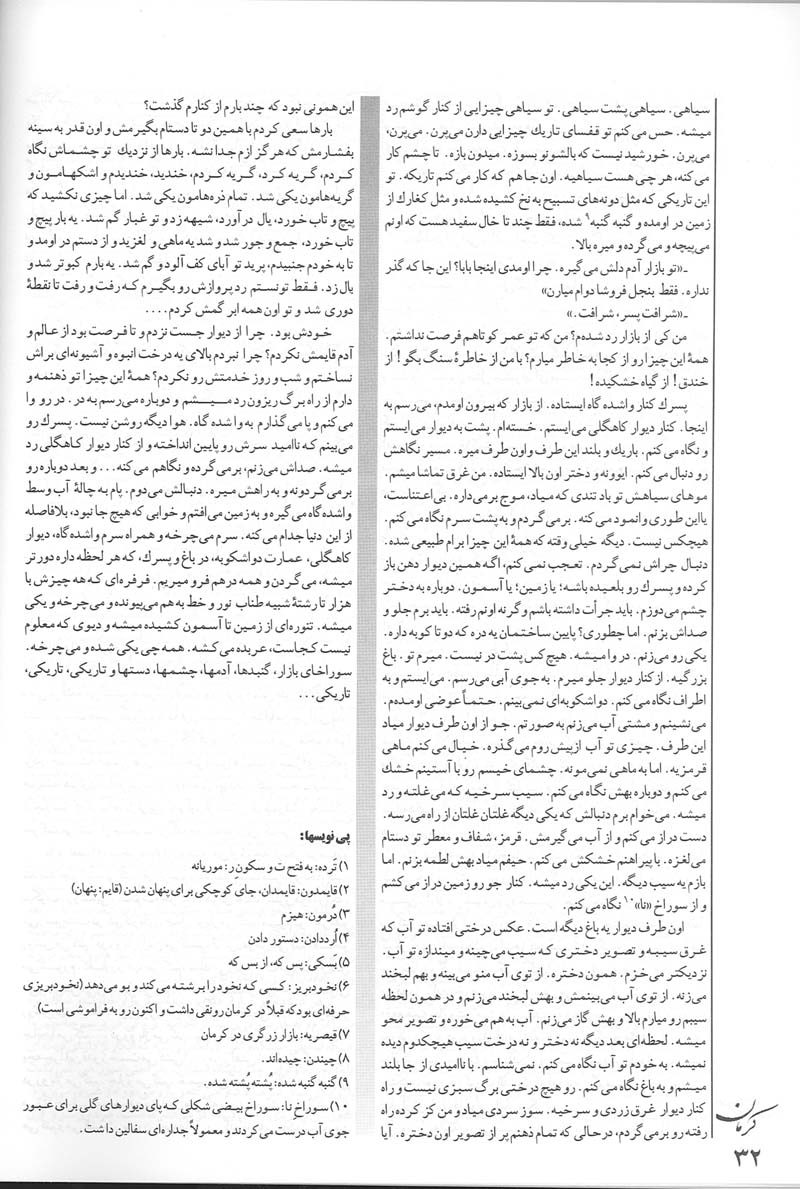 سیاهی. سیاهی پشت سیاهی. تو سیاهی چیزایی از کنار گوشم رد
میشه. حس می‌کنم تو قفسای تاریك چیزایی دارن می‌پرن. می‌پرن،
می‌پرن. خورشید نیست که بالشونو بسوزه. میدون بازه. تا چشم کار
می‌کنه، هر چی هست سیاهیه. اون جا هم که کار می‌کنم تاریکه. تو
این تاریکی که مثل دونه‌های تسبیح به نخ کشیده شده و مثل کغارك از
زمین در اومده و گنبه گنبه۹ شده، فقط چند تا خال سفید هست که اونم
می‌پیچه و می‌گرده و میره بالا.
ـ «تو بازار آدم دلش می‌گیره. چرا اومدی اینجا بابا؟ این جا که گذر
نداره. فقط بنجل فروشا دوام میارن»
ـ «شرافت پسر، شرافت.»
من کی از بازار رد شده‌م؟ من که تو عمر کوتاهم فرصت نداشتم.
همهٔ این چیزا رو از کجا به خاطر میارم؟ با من از خاطرهٔ سنگ بگو! از
خندق! از گیاه خشکیده!
پسرك کنار واشده گاه ایستاده. از بازار که بیرون اومدم، می‌رسم به
اینجا. کنار دیوار کاهگلی می‌ایستم. خسته‌ام. پشت به دیوار می‌ایستم
و نگاه می‌کنم. باریك و بلند این طرف و اون طرف میره. مسیر نگاهش
رو دنبال می‌کنم. ایوونه و دختر اون بالا ایستاده. من غرق تماشا میشم.
موهای سیاهش تو باد تندی که میاد، موج برمی‌داره. بی‌اعتناست،
یا این طوری وانمود می‌کنه. برمی‌گردم و به پشت سرم نگاه می‌کنم.
هیچکس نیست. دیگه خیلی وقته که همهٔ این چیزا برام طبیعی شده.
دنبال چراش نمی‌گردم. تعجب نمی‌کنم، اگه همین دیوار دهن باز
کرده و پسرك رو بلعیده باشه؛ یا زمین؛ یا آسمون. دوباره به دختر
چشم می‌دوزم. باید جرأت داشته باشم و گرنه اونم رفته. باید برم جلو و
صداش بزنم. اما چطوری؟ پایین ساختمان یه دره که دو تا کوبه داره.
یکی رو می‌زنم. در وا میشه. هیچ کس پشت در نیست. میرم تو. باغ
بزرگیه. از کنار دیوار جلو میرم. به جوی آبی می‌رسم. می‌ایستم و به
اطراف نگاه می‌کنم. دواشکوبه‌ای نمی‌بینم. حتماً عوضی اومده‌م.
می‌نشینم و مشتی آب می‌زنم به صورتم. جو از اون طرف دیوار میاد
این طرف. چیزی تو آب از پیش روم می‌گذره. خیال می‌کنم ماهی
قرمزیه. اما به ماهی نمی‌مونه. چشمای خیسم رو با آستینم خشك
می‌کنم و دوباره بهش نگاه می‌کنم. سیب سرخیه که می‌غلته و رد
میشه. می‌خوام برم دنبالش که یکی دیگه غلتان غلتان از راه می‌رسه.
دست دراز می‌کنم و از آب می‌گیرمش. قرمز، شفاف و معطر تو دستام
می‌لغزه. با پیراهنم خشکش می‌کنم. حیفم میاد بهش لطمه بزنم. اما
بازم یه سیب دیگه. این یکی رد میشه. کنار جو رو زمین دراز می‌کشم
و از سوراخ «نا»۱۰ نگاه می‌کنم.
اون طرف دیوار یه باغ دیگه است. عکس درختی افتاده تو آب که
غرق سیبه و تصویر دختری که سیب می‌چینه و میندازه تو آب.
نزدیکتر می‌خزم. همون دختره. از توی آب منو می‌بینه و بهم لبخند
می‌زنه. از توی آب می‌بینمش و بهش لبخند می‌زنم و در همون لحظه
سیبم رو میارم بالا و بهش گاز می‌زنم. آب به هم می‌خوره و تصویر محو
میشه. لحظه‌ای بعد دیگه نه دختر و نه درخت سیب هیچکدوم دیده
نمیشه. به خودم تو آب نگاه می‌کنم. نمی‌شناسم. با ناامیدی از جا بلند
میشم و به باغ نگاه می‌کنم. رو هیچ درختی برگ سبزی نیست و راه
کنار دیوار غرق زردی و سرخیه. سوز سردی میاد و من کز کرده راه
رفته رو برمی‌گردم، در حالی که تمام ذهنم پر از تصویر اون دختره. آیا
این همونی نبود که چند بارم از کنارم گذشت؟
بارها سعی کردم با همین دو تا دستام بگیرمش و اون قدر به سینه
بفشارمش که هرگز ازم جدا نشه. بارها از نزدیك تو چشماش نگاه
کردم، گریه کرد، گریه کردم، خندید، خندیدم و اشکهامون و
گریه‌هامون یکی شد. تمام ذره‌هامون یکی شد. اما چیزی نکشید که
پیچ و تاب خورد، یال در آورد، شیهه زد و تو غبار گم شد. یه بار پیچ و
تاب خورد، جمع و جور شد و شد یه ماهی و لغزید و از دستم در اومد و
تا به خودم جنبیدم، پرید تو آبای کف آلود و گم شد. یه بارم کبوتر شد و
بال زد. فقط تونستم رد پروازش رو بگیرم که رفت و رفت تا نقطهٔ
دوری شد و تو اون همه ابر گمش کردم....
خودش بود. چرا از دیوار جست نزدم و تا فرصت بود از عالم و
آدم قایمش نکردم؟ چرا نبردم بالای یه درخت انبوه و آشیونه‌ای براش
نساختم و شب و روز خدمتش رو نکردم؟ همهٔ این چیزا تو ذهنمه و
دارم از راه برگ ریزون رد میشم و دوباره می‌رسم به در. در رو وا
می‌کنم و پا می‌گذارم به واشده گاه. هوا دیگه روشن نیست. پسرك رو
می‌بینم که ناامید سرش رو پایین انداخته و از کنار دیوار کاهگلی رد
میشه. صداش می‌زنم، برمی‌گرده و نگاهم می‌کنه... و بعد دوباره رو
برمی‌گردونه و به راهش میره. دنبالش می‌دوم. پام به چالهٔ آب وسط
واشده گاه می‌گیره و به زمین می‌افتم و خوابی که هیچ جا نبود، بلافاصله
از این دنیا جدام می‌کنه. سرم می‌چرخه و همراه سرم واشده گاه، دیوار
کاهگلی، عمارت دواشکوبه، در باغ و پسرك، که هر لحظه داره دورتر
میشه، می‌گردن و همه در هم فرو میریم. فرفره‌ای که هه چیزش با
هزار تا رشتهٔ شبیه طناب نور و خط به هم می‌پیونده و می‌چرخه و یکی
میشه. تنوره‌ای از زمین تا آسمون کشیده میشه و دیوی که معلوم
نیست کجاست، عربده می‌کشه. همه چی یکی شده و می‌چرخه.
سوراخای بازار، گنبدها، آدمها، چشمها، دستها و تاریکی، تاریکی،
تاریکی...
پی نویسها:
۱) تَرده: به فتح ت و سکون ر: موریانه
۲) قایمدون: قایمدان، جای کوچکی برای پنهان شدن (قایم: پنهان)
۳) دُرمون: هیزم
۴) اُرددادن: دستور دادن
۵) بَسکی: بس که، از بس که
۶) نخودبریز: کسی که نخود را برشته می‌کند و بو می‌دهد (نخودبریزی
حرفه‌ای بود که قبلاً در کرمان رونقی داشت و اکنون رو به فراموشی است)
۷) قیصریه: بازار زرگری در کرمان
۸) چیندن: چیده‌اند.
۹) گنبه گنبه شده: پُشته پُشته شده.
۱۰) سوراخ نا: سوراخ بیضی شکلی که پای دیوارهای گلی برای عبور
جوی آب درست می‌کردند و معمولاً جداره‌ای سفالین داشت.
کرمان
۳۲